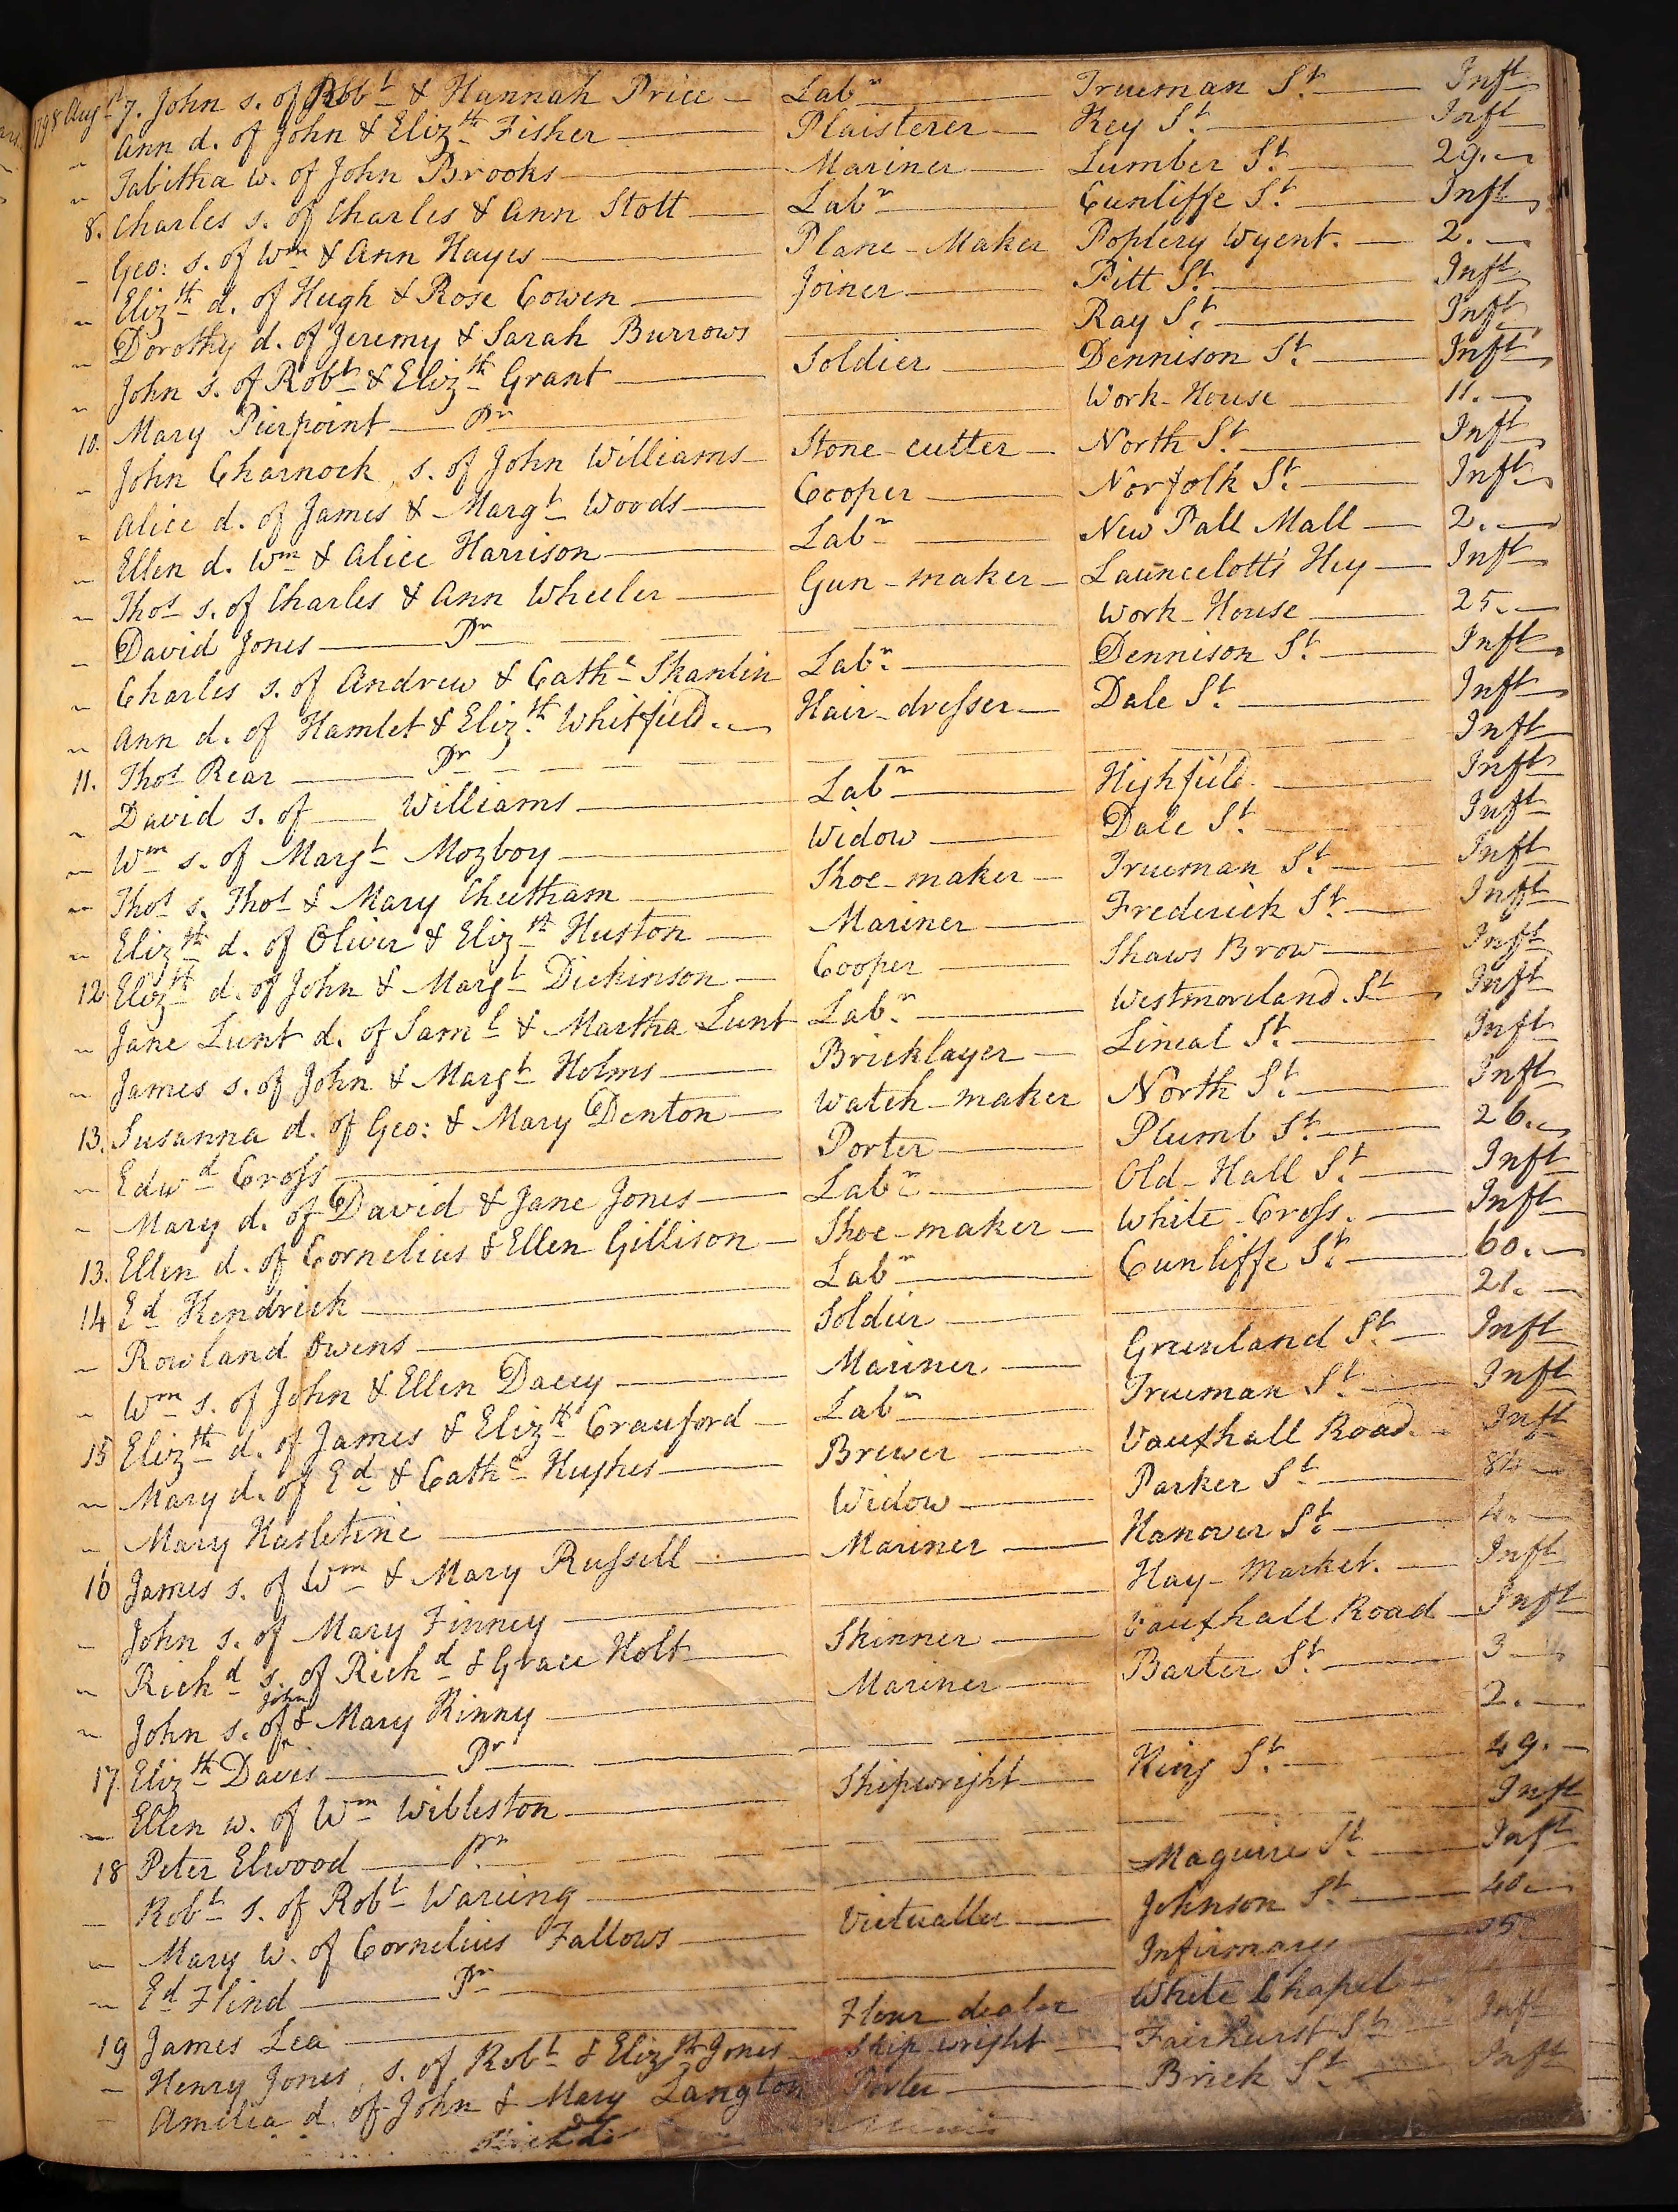 1798 Augst 7. John s. of Robt & Hannah Price — Labr — Trueman St. — Inft
" Ann d. of John & Elizth Fisher — Plaisterer — Key St. — Inft
" Tabitha w. of John Brooks — Mariner — Lumber St. — 29.
8. Charles s. of Charles & Ann Stott — Labr — Cunliffe St. — Inft
" Geo: s. of Wm & Ann Hayes — Plane-Maker Poplery Wyent. — 2.
" Elizth d. of Hugh & Rose Cowen — Joiner — Pitt St. — Inft
" Dorothy d. of Jeremy & Sarah Burrows — Ray St. — Inft
" John s. of Robt & Elizth Grant — Soldier — Dennison St. — Inft
10. Mary Pierpoint — Pr — Work-House — 11.
" John Charnock, s. of John Williams — Stone-cutter — North St. — Inft
" Alice d. of James & Margt Woods — Cooper — Norfolk St. — Inft
" Ellen d. Wm & Alice Harrison — Labr — New Pall Mall — 2.
" Thos s. of Charles & Ann Wheeler — Gun-maker — Launcelott's Hey — Inft
" David Jones — Pr — Work-House — 25.
" Charles s. of Andrew & Cathe Skanlin Labr. — Dennison St. — Inft
" Ann d. of Hamlet & Elizth Whitfield. — Hair-dresser — Dale St. — Inft
11. Thos Rear — Pr — Inft
" David s. of — Williams — Labr — Highfield. — Inft
" Wm s. of Margt Mozboy — Widow — Dale St. — Inft
" Thos s. Thos & Mary Cheetham — Shoe-maker — Trueman St. — Inft
" Elizth d. of Oliver & Elizth Huston — Mariner — Frederick St. — Inft
12 Elizth d. of John & Margt Dickinson — Cooper — Shaws Brow — Inft
" Jane Lunt d. of Saml & Martha Lunt Labr. — Westmoreland. St — Inft
" James s. of John & Margt Holms — Bricklayer — Lineal St. — Inft
13. Susanna d. of Geo: & Mary Denton — Watch-maker North St. — Inft
" Edwd Cross — Porter — Plumb St. — 26.
" Mary d. of David & Jane Jones — Labr — Old-Hall St. — Inft
13. Ellen d. of Cornelius & Ellen Gillison — Shoe-maker — White-Cross. — Inft
14 Ed Kendrick — Labr — Cunliffe St. — 60.
" Rowland Owens — Soldier — 21.
" Wm s. of John & Ellen Dacey — Mariner. — Greenland St. — Inft
15 Elizth d. of James & Elizth Crauford — Labr — Trueman St. — Inft
" Mary d. of Ed & Cathe Hughes — Brewer — Vauxhall Road. — Inft
" Mary Hasletine — Widow — Parker St. —
16 James s. of Wm & Mary Russell — Mariner — Hanover St. — 4.
" John s. of Mary Finney — Hay-Market. — Inft
" Richd s. of Richd & Grace Holt — Skinner — Vauxhall Road — Inft
" John s. of John & Mary Kinny — Mariner — Barter St. — 3
17 Elizth Davis — Pr — 2.
" Ellen w. of Wm Wibleston — Shipwright — King St. — 49.
18 Peter Elwood — Pr — Inft
" Robt s. of Robt Wareing — Maguire St. — Inft
" Mary w. of Cornelius Fallows — Victualler — Johnson St. — 40.
" Ed Flind — Pr — Infirmary
19 James Lea — Flour dealer White Chapel
" Henry Jones, s. of Robt & Elizth Jones — Ship wright — Fairhurst St. — Inft
" Amelia d. of John & Mary Langton Porter — Brick St. — Inft